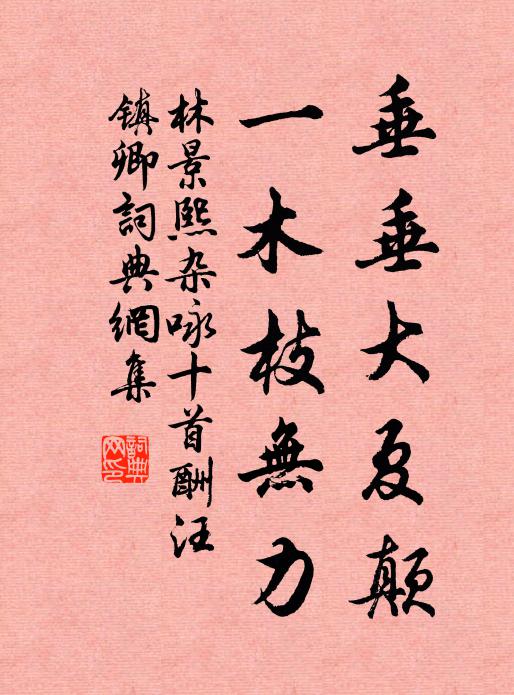 垂垂大夏颠
一木枝無力
林景熙杂咏十首酬汪
镇卿詞典網集
詞典
网印